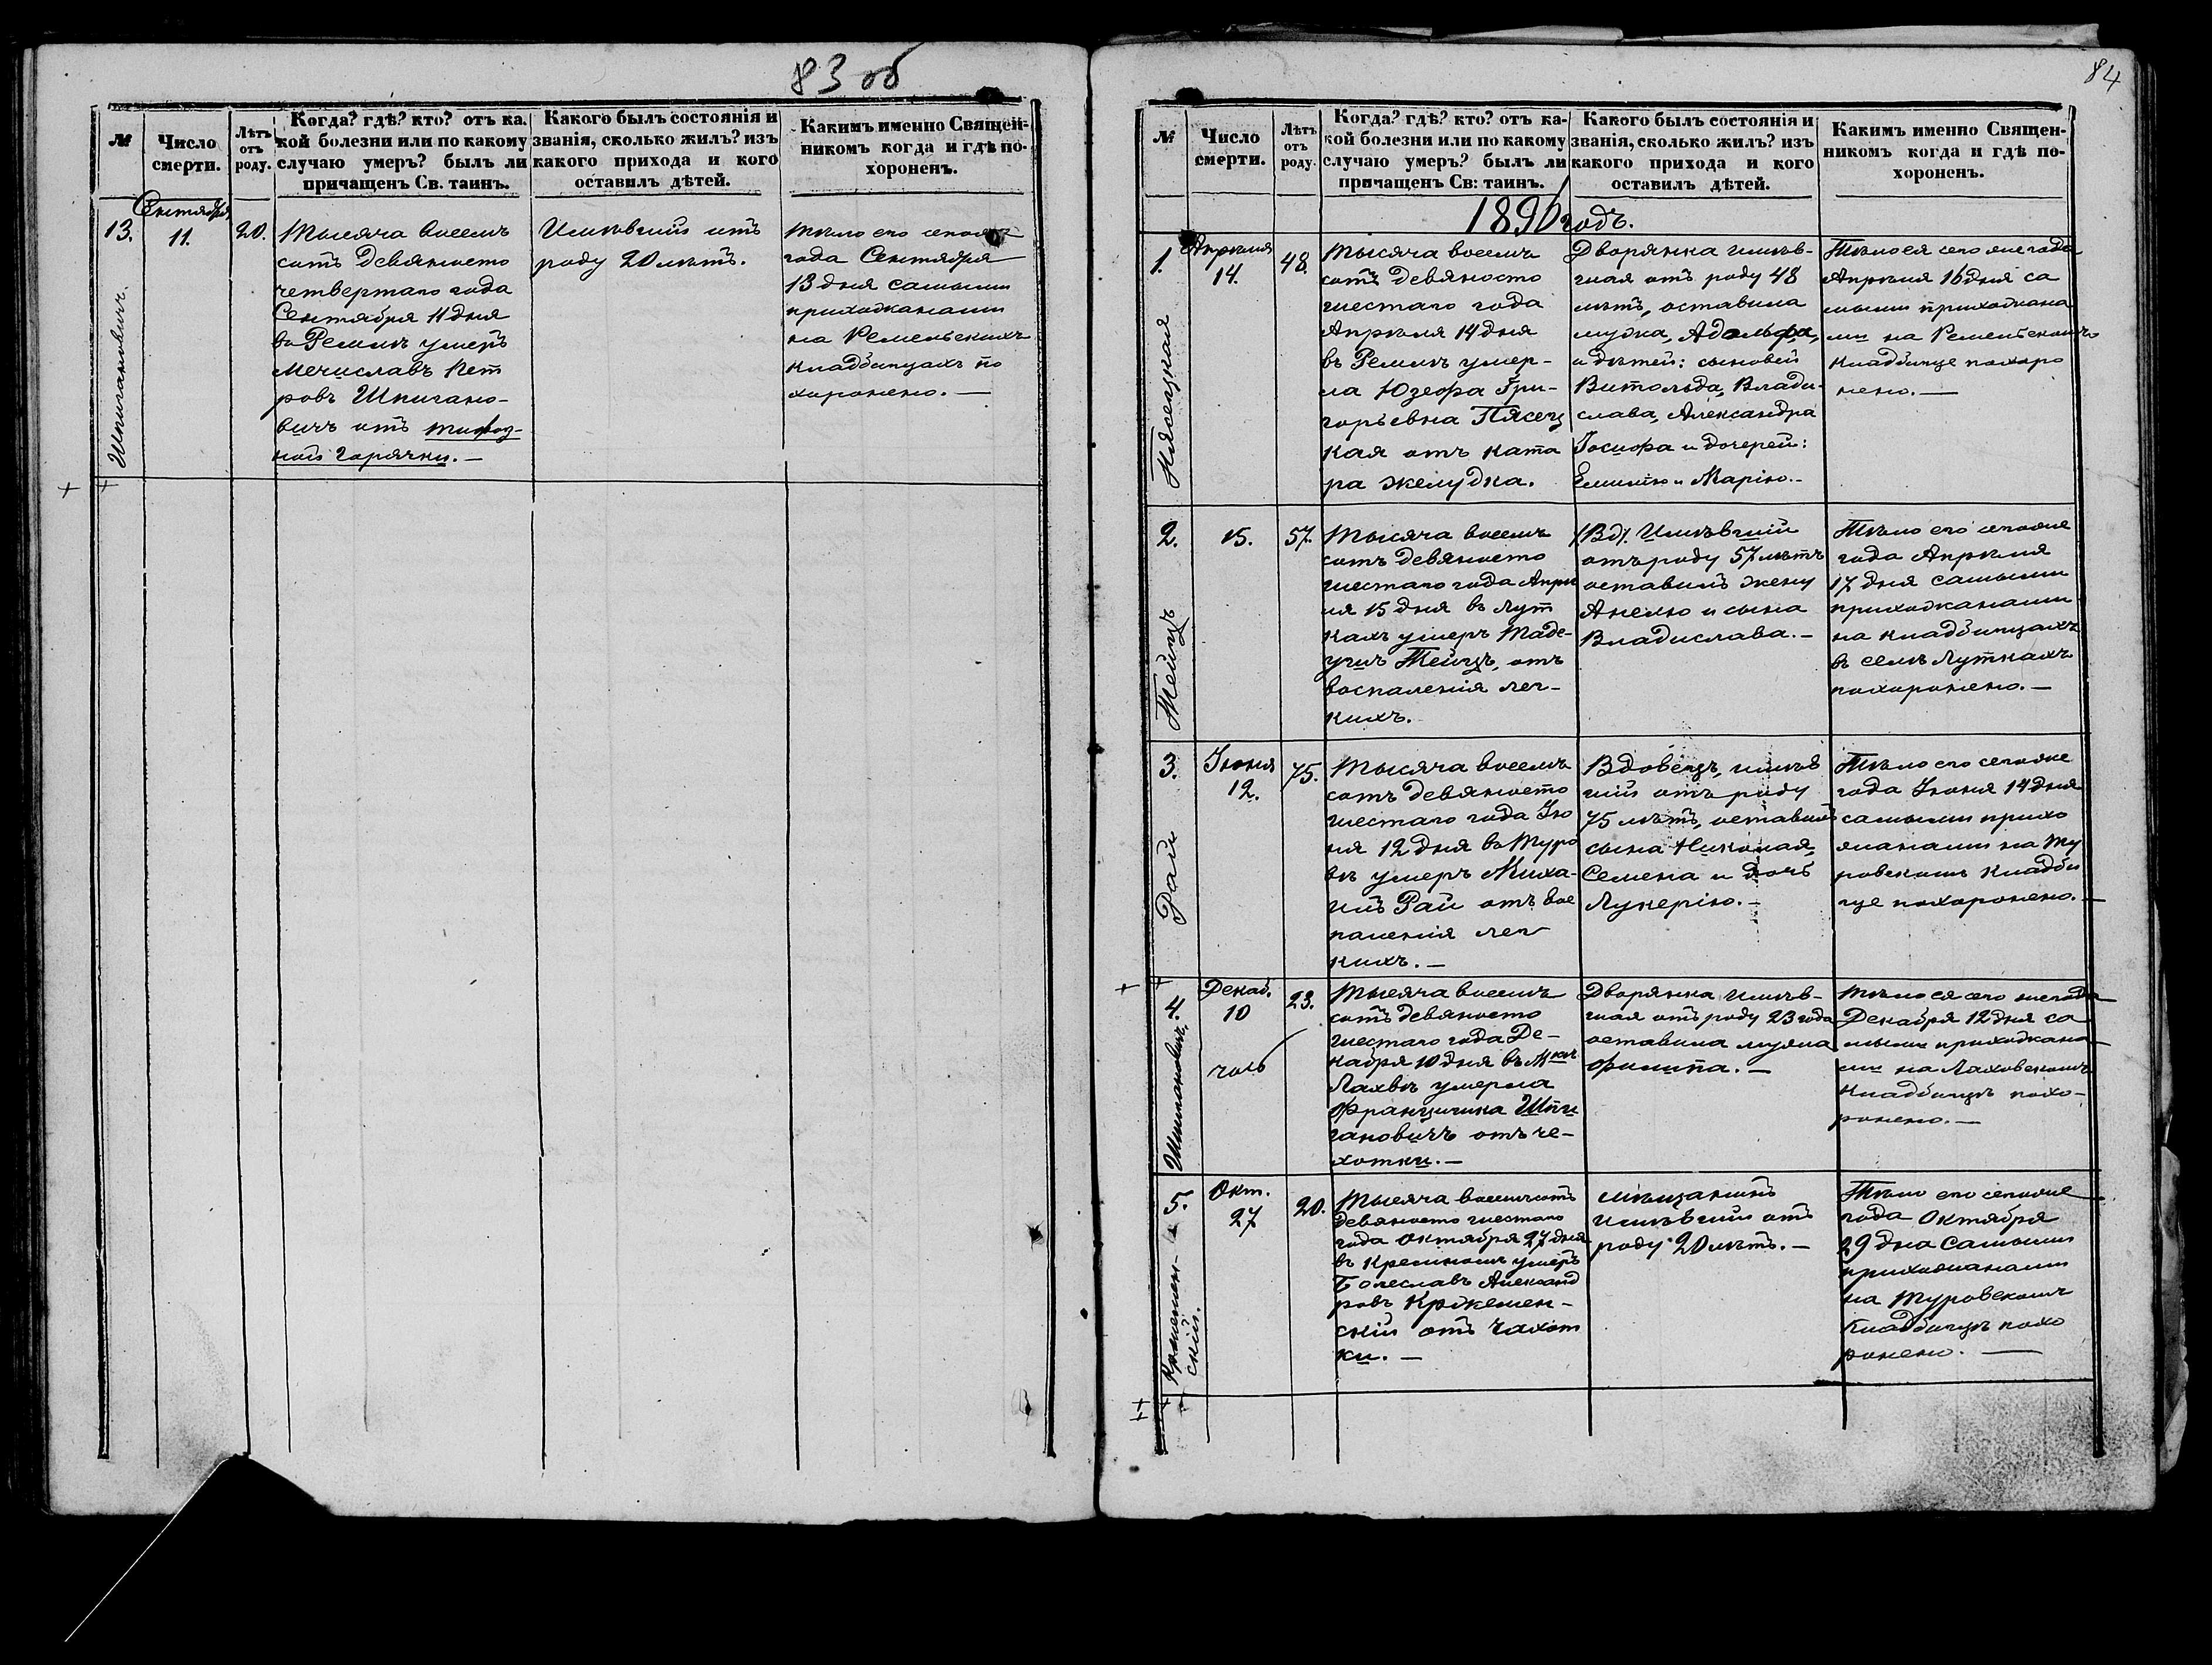 83 об
№
Число
смерти.
Лѣтъ
отъ
роду.
Когда? гдѣ? кто? отъ ка-
кой болезни или по какому
случаю умеръ? былъ ли
причащенъ Св. таинъ.
Какого былъ состоянія и
званія, сколько жилъ? изъ
какого прихода и кого
оставилъ дѣтей.
Какимъ именно Священ-
никомъ когда и гдѣ по-
хороненъ.
13.
Шпигановичъ.
Сентября
11.
20.
Тысяча восемь
сотъ девяносто
четвертаго года
Сентября 11 дня
въ Ремлѣ умеръ
Мечиславъ Пет
ровъ Шпигано-
вичъ отъ тифоз-
ной горячки. —
Имѣвшій отъ
роду 20 лѣтъ.
Тѣло его сегоже
года Сентября
13 дня самыми
прихожанами
на Ремельскихъ
кладбищахъ по
хоронено. —
84
№
Число
смерти.
Лѣтъ
отъ
роду.
Когда? гдѣ? кто? отъ ка-
кой болезни или по какому
случаю умеръ? былъ ли
причащенъ Св: таинъ.
Какого былъ состоянія и
званія, сколько жилъ? изъ
какого прихода и кого
оставилъ дѣтей.
Какимъ именно Священ-
никомъ когда и гдѣ по-
хороненъ.
1896 годъ.
1.
Пясецкая
Апрѣля
14.
48.
Тысяча восемь
сотъ девяносто
шестаго года
Апрѣля 14 дня
въ Ремлѣ умер-
ла Юзефа Гри-
горьевна Пясец
кая отъ ката
ра желудка.
Дворянка имѣв-
шая отъ роду 48
лѣтъ, оставила
мужа, Адольфа,
и дѣтей: сыновей
Витольда, Влади-
слава, Александра
Іосифа и дочерей:
Емилію и Марію.-
Тѣло ея сего же года
Апрѣля 16 дня са
мыми прихожана
ми на Ремельскомъ
кладбище похоро
нено. —
2.
Тейцъ
15.
57.
Тысяча восемь
сотъ девяносто
шестаго года Апрѣ
ля 15 дня въ Лут
кахъ умеръ Таде-
ушъ Тейцъ, отъ
воспаленія лег-
кихъ.
/Вд/. Имѣвшій
отъ роду 57 лѣтъ
оставилъ жену
Анелю и сына
Владислава. —
Тѣло его сегоже
года Апрѣля
17 дня самыми
прихожанами
на кладбищахъ
въ селѣ Луткахъ
похоронено. —
3.
Рай
Іюня
12.
75.
Тысяча восемь
сотъ девяносто
шестаго года Ію
ня 12 дня въ Туро
вѣ умеръ Миха-
илъ Рай отъ вос
паленія лег
кихъ. —
Вдовецъ, имѣв
шій отъ роду
75 лѣтъ, оставилъ
сына Николая,
Семена и дочь
Лукерію. -
Тѣло его сегоже
года Іюня 14 дня
самыми прихо
жанами на Ту
ровскомъ кладби
ще похоронено. —
4.
Шпигановичъ.
Декаб.
10
23.
Тысяча восемь
сотъ девяносто
шестаго года Де-
кабря 10 дня въ Мкѣ
Лахвѣ умерла
Францишка Шпи
гановичъ отъ че-
хотки. —
Дворянка имѣв-
шая отъ роду 23 года
оставила мужа
Филипа. —
Тѣло ея сего же года
Декабря 12 дня са
мыми прихожана-
ми на Лаховскомъ
кладбищѣ похо-
ронено. —
5.
Кржемен-
скій.
Окт.
27
20.
Тысяча восемьсотъ
девяносто шестаго
года Октября 27 дня
въ Кремномъ умеръ
Болеславъ Александ
ровъ Кржемен-
скій отъ чахот
ки. —
мѣщанинъ
имѣвшій отъ
роду 20 лѣтъ. —
Тѣло его сегоже
года Октября
29 дна самыми
прихожанами
на Туровскомъ
кладбищѣ похо
ронено. —